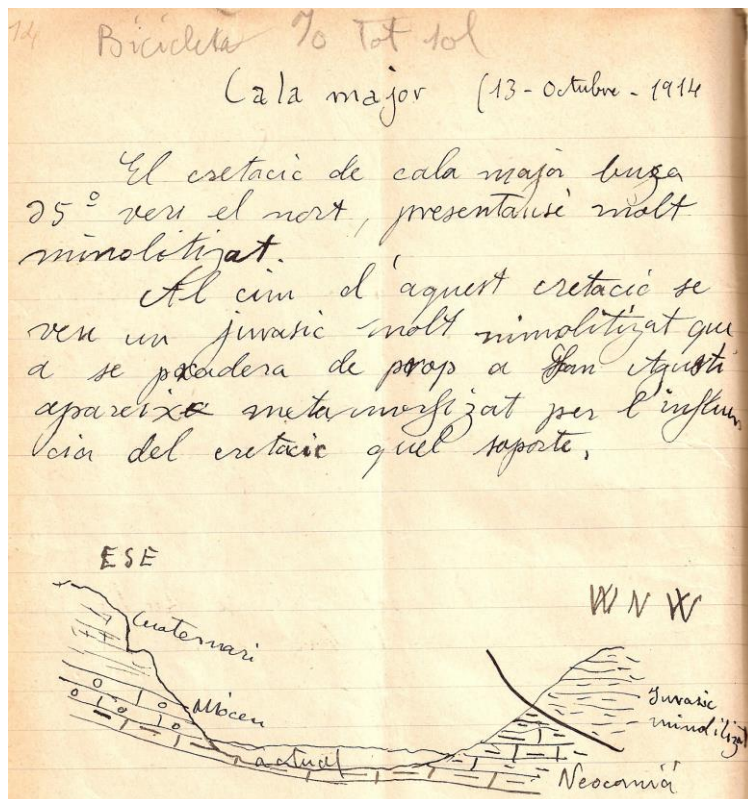 14 Bicicleta Jo Tot sol
Cala major (13 - Octubre - 1914
El cretacic de cala major buza
25º veru el nort, presentanse molt
minolitizat.
Al cim d'aquest cretacic se
veu un jurasic molt mimolitizat que
a se pradera de prop a San Agusti
apareixe metamorfizat per l'influen
cia del cretacic quel soporte.
ESE
WNW
Cuaternari
Mioceu
actual
Jurasic
minolilizat
Neocomiá